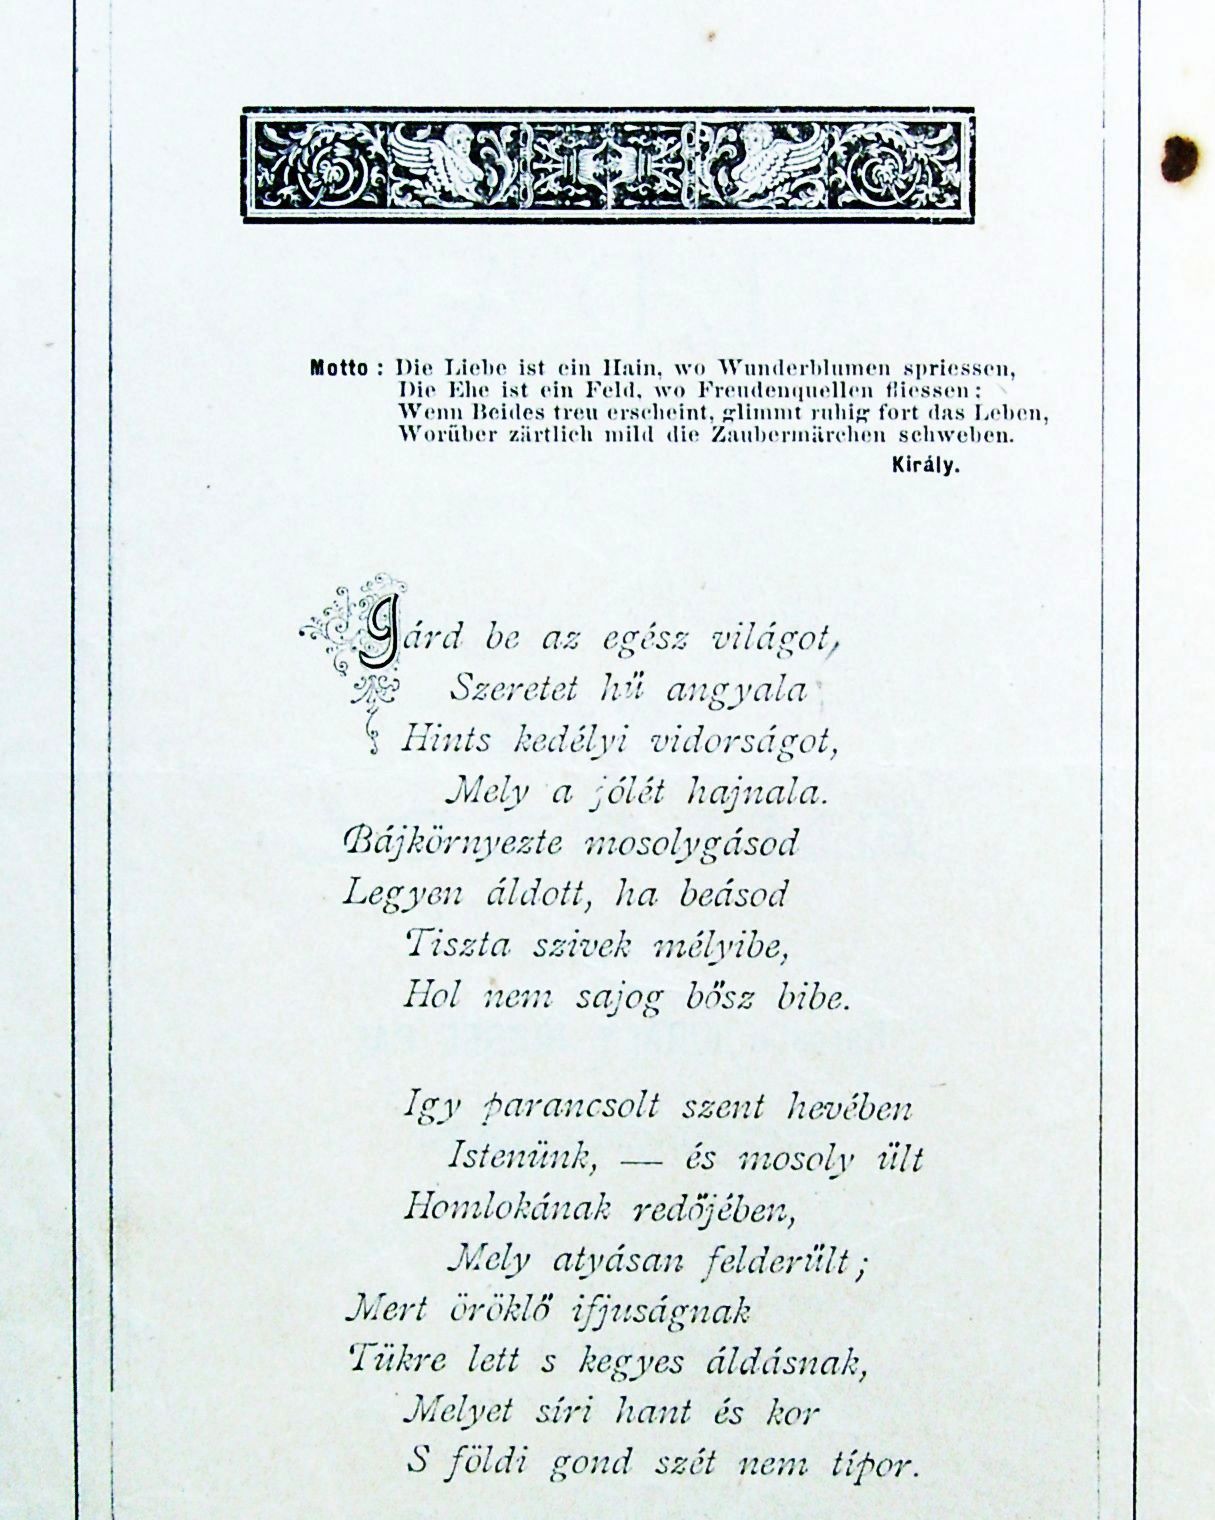 Motto : Die Liebe ist ein Hain, wo Wunderblumen spriessen,
Die Ehe ist ein Feld, wo Freudenquellen fliessen;
Wenn Beides treu erscheint, glimmt ruhig fort das Leben,
Worüber zärtlich mild die Zaubermärchen schweben.
Király.
Járd be az egész világot,
Szeretet hű angyala
Hints kedélyi vidorságot,
Mely a jólét hajnala.
Bájkörnyezte mosolygásod
Legyen áldott, ha beásod
Tiszta szivek mélyibe,
Hol nem sajog bősz bibe.
Igy parancsolt szent hevében
Istenünk, — és mosoly ült
Homlokának redőjében,
Mely atyásan felderült ;
Mert öröklő ifjuságnak
Tükre lett s kegyes áldásnak,
Melyet síri hant és kor
S földi gond szét nem típor.